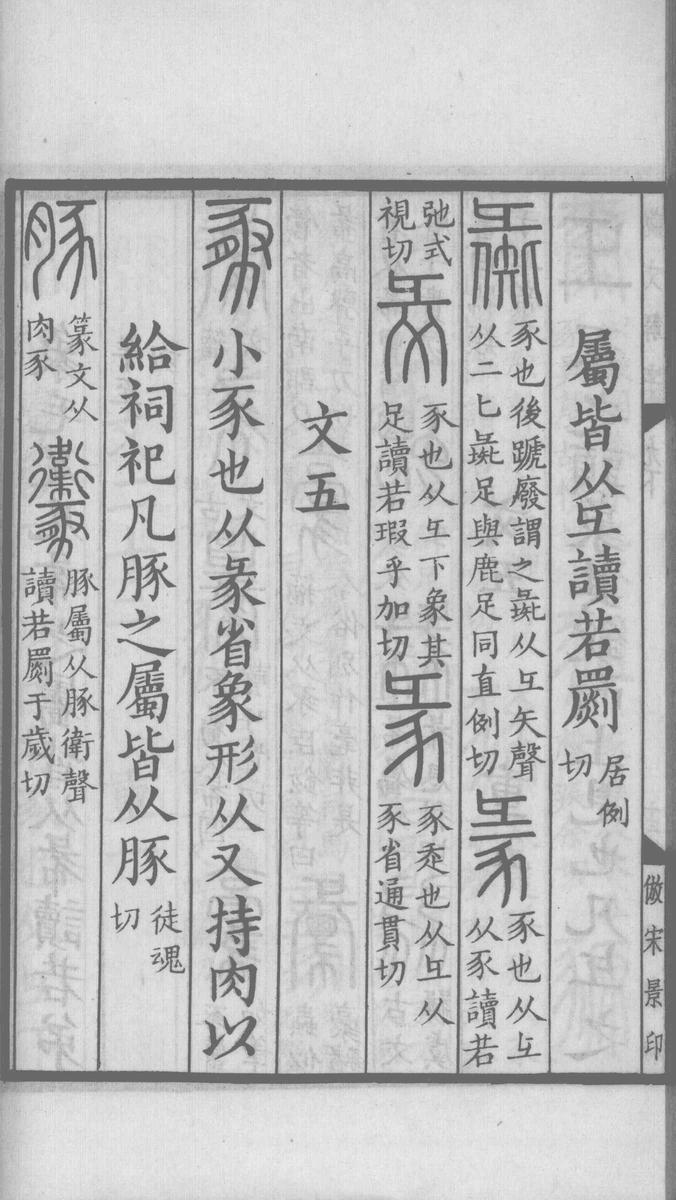 屬皆从彑讀若罽居例切
彘豕也後蹏廢謂之彘从彑矢聲从二匕彘足與鹿足同直例切
彖豕也从彑从豕讀若弛式視切
彑下象其足讀若瑕乎加切
彖豕走也从彑从豕省通貫切
文五
㣇小豕也从彖省象形从又持肉以
給祠祀凡豚之屬皆从豚徒魂切
豚篆文从肉豕
豚屬从豚衛聲讀若罽于歲切
倣宋景印